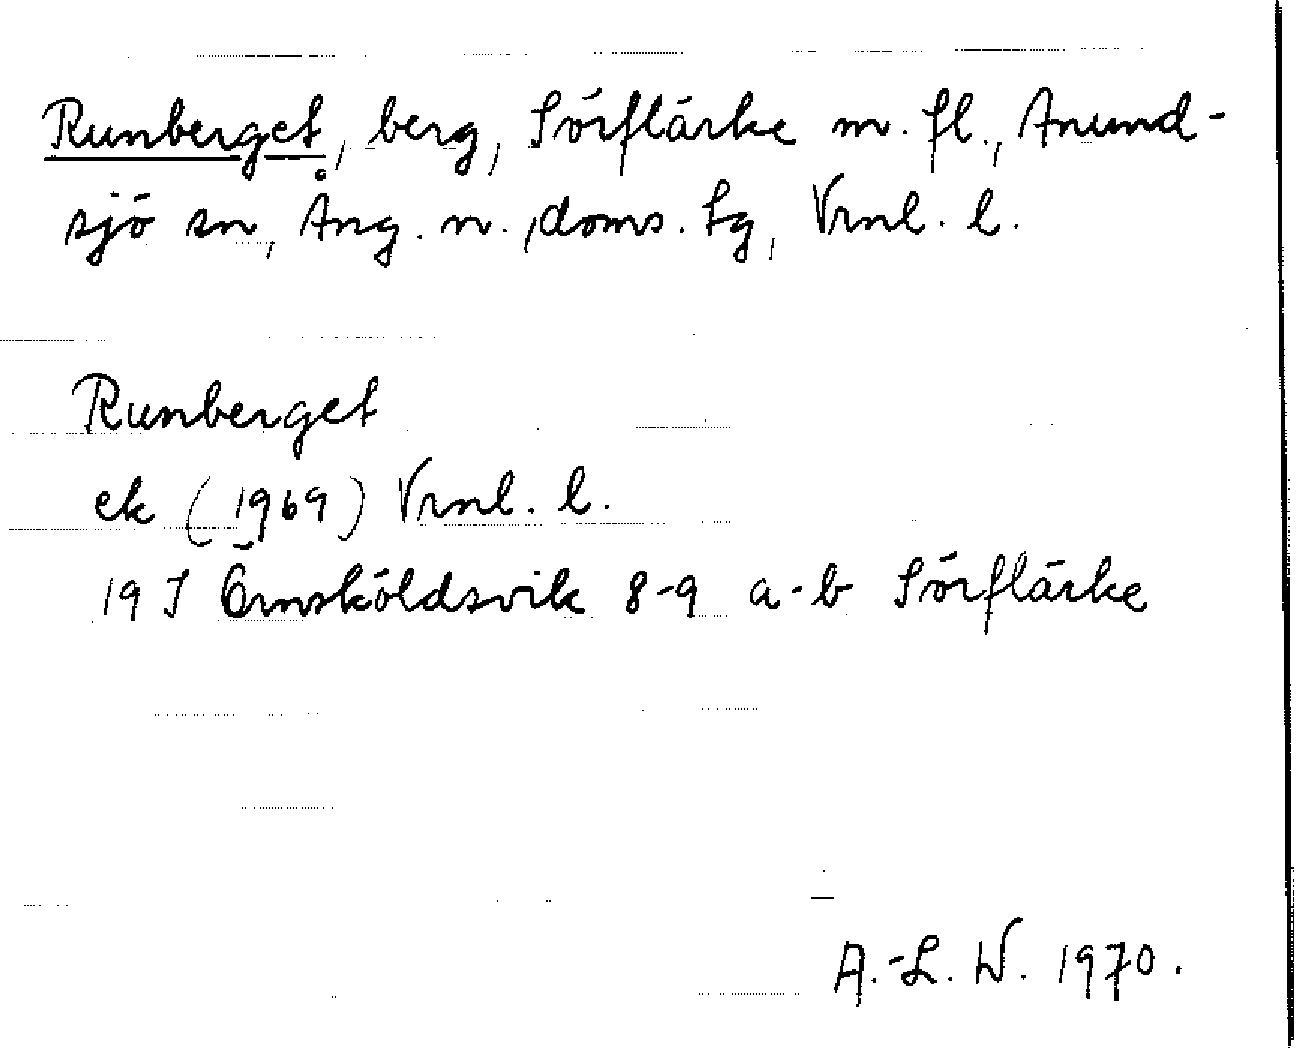 Runberget, berg, Sörflärke m. fl., Anund-
sjö sn, Ång. n., doms. sg, Vrnl. l.
Runberget
ek (1969) Vrnl. l.
19 J Örnsköldsvik 8-9 a-b Sörflärke
A.-L. W. 1970.